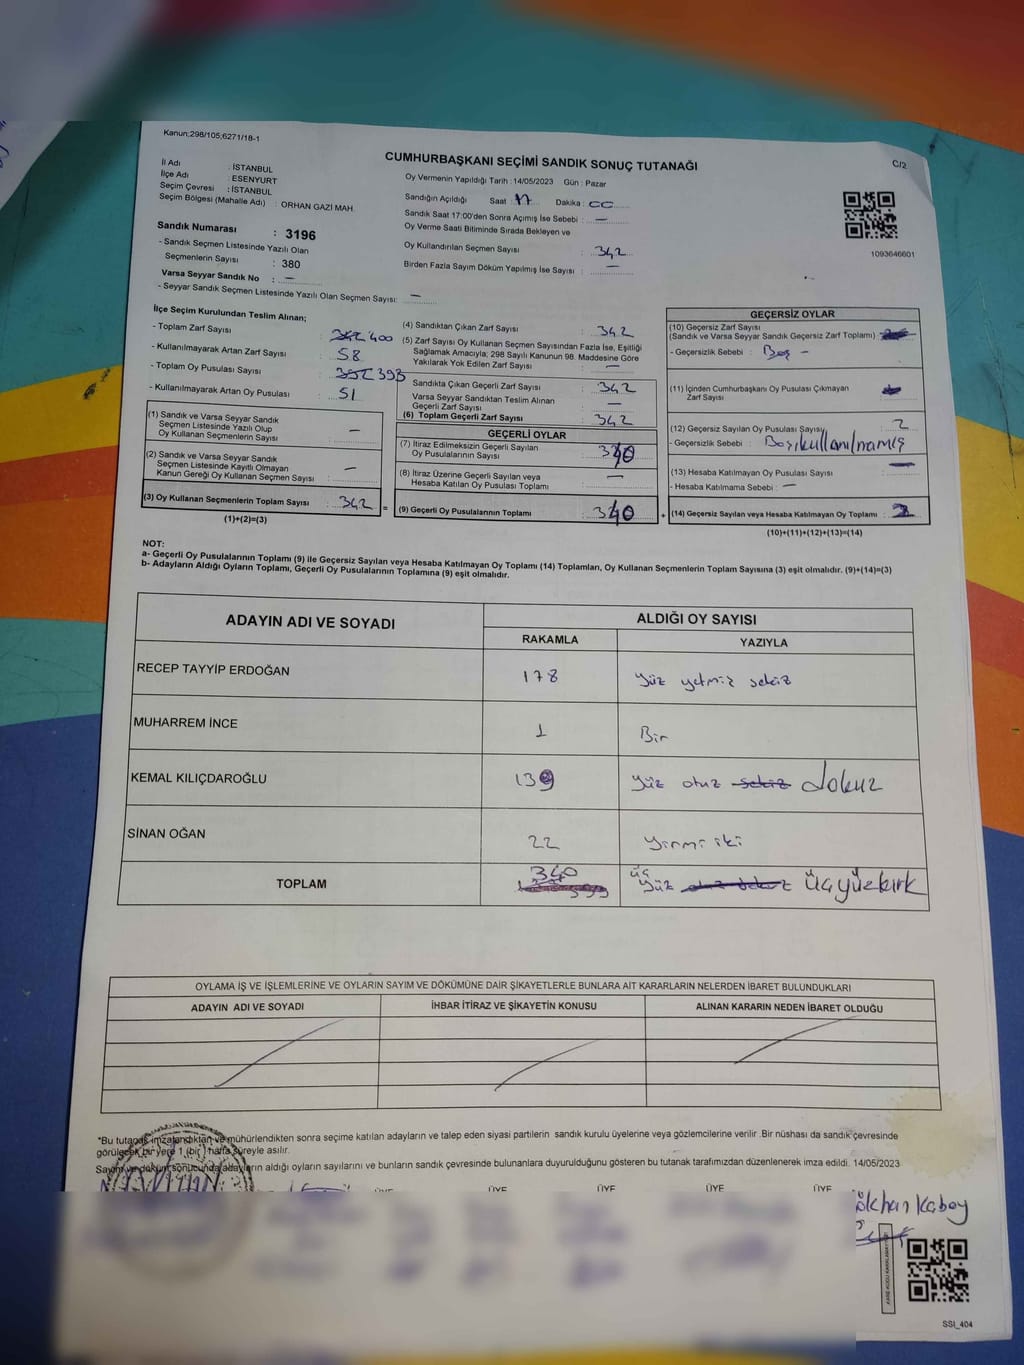 Kanun;298/105;6271/18-1
CUMHURBAŞKANI SEÇİMİ SANDIK SONUÇ TUTANAĞI
C/2
İl Adı : İSTANBUL
İlçe Adı : ESENYURT
Seçim Çevresi : İSTANBUL
Seçim Bölgesi (Mahalle Adı) : ORHAN GAZİ MAH.
Sandık Numarası : 3196
- Sandık Seçmen Listesinde Yazılı Olan
Seçmenlerin Sayısı : 380
Varsa Seyyar Sandık No : —
- Seyyar Sandık Seçmen Listesinde Yazılı Olan Seçmen Sayısı: —
Oy Vermenin Yapıldığı Tarih : 14/05/2023 Gün : Pazar
Sandığın Açıldığı Saat : 17 Dakika : 00
Sandık Saat 17:00'den Sonra Açımış İse Sebebi : —
Oy Verme Saati Bitiminde Sırada Bekleyen ve
Oy Kullandırılan Seçmen Sayısı : 342
Birden Fazla Sayım Döküm Yapılmış İse Sayısı : —
1093646601
İlçe Seçim Kurulundan Teslim Alınan;
- Toplam Zarf Sayısı : 342 400
- Kullanılmayarak Artan Zarf Sayısı : 58
- Toplam Oy Pusulası Sayısı : 393
- Kullanılmayarak Artan Oy Pusulası : 51
(1) Sandık ve Varsa Seyyar Sandık
Seçmen Listesinde Yazılı Olup
Oy Kullanan Seçmenlerin Sayısı : —
(2) Sandık ve Varsa Seyyar Sandık
Seçmen Listesinde Kayıtlı Olmayan
Kanun Gereği Oy Kullanan Seçmen Sayısı : —
(3) Oy Kullanan Seçmenlerin Toplam Sayısı : 342 =
(1)+(2)=(3)
(4) Sandıktan Çıkan Zarf Sayısı : 342
(5) Zarf Sayısı Oy Kullanan Seçmen Sayısından Fazla İse, Eşitliği
Sağlamak Amacıyla; 298 Sayılı Kanunun 98. Maddesine Göre
Yakılarak Yok Edilen Zarf Sayısı : —
Sandıkta Çıkan Geçerli Zarf Sayısı : 342
Varsa Sandıktan Teslim Alınan
Geçerli Zarf Sayısı : —
(6) Toplam Geçerli Zarf Sayısı : 342
GEÇERLİ OYLAR
(7) İtiraz Edilmeksizin Geçerli Sayılan
Oy Pusulalarının Sayısı : 340
(8) İtiraz Üzerine Geçerli Sayılan veya
Hesaba Katılan Oy Pusulası Toplamı : —
(9) Geçerli Oy Pusulalarının Toplamı : 340 +
GEÇERSİZ OYLAR
(10) Geçersiz Zarf Sayısı
(Sandık ve Varsa Seyyar Sandık Geçersiz Zarf Toplamı)
- Geçersizlik Sebebi : Boş -
(11) İçinden Cumhurbaşkanı Oy Pusulası Çıkmayan
Zarf Sayısı
(12) Geçersiz Sayılan Oy Pusulası Sayısı : 2
- Geçersizlik Sebebi : Boş kullanılmamış
(13) Hesaba Katılmayan Oy Pusulası Sayısı : —
- Hesaba Katılmama Sebebi : —
(14) Geçersiz Sayılan veya Hesaba Katılmayan Oy Toplamı : 2
(10)+(11)+(12)+(13)=(14)
NOT:
a- Geçerli Oy Pusulalarının Toplamı (9) ile Geçersiz Sayılan veya Hesaba Katılmayan Oy Toplamı (14) Toplamları, Oy Kullanan Seçmenlerin Toplam Sayısına (3) eşit olmalıdır. (9)+(14)=(3)
b- Adayların Aldığı Oyların Toplamı, Geçerli Oy Pusulalarının Toplamına (9) eşit olmalıdır.
ADAYIN ADI VE SOYADI
ALDIĞI OY SAYISI
RAKAMLA YAZIYLA
RECEP TAYYİP ERDOĞAN 178 Yüz yetmiş sekiz
MUHARREM İNCE 1 Bir
KEMAL KILIÇDAROĞLU 139 Yüz otuz sekiz dokuz
SİNAN OĞAN 22 Yirmi iki
TOPLAM 340 üç yüz otuz sekiz üçyüzkırk
OYLAMA İŞ VE İŞLEMLERİNE VE OYLARIN SAYIM VE DÖKÜMÜNE DAİR ŞİKAYETLERLE BUNLARA AİT KARARLARIN NELERDEN İBARET BULUNDUKLARI
ADAYIN ADI VE SOYADI İHBAR İTİRAZ VE ŞİKAYETİN KONUSU ALINAN KARARIN NEDEN İBARET OLDUĞU
*Bu tutanak imzalandıktan ve mühürlendikten sonra seçime katılan adayların ve talep eden siyasi partilerin sandık kurulu üyelerine veya gözlemcilerine verilir .Bir nüshası da sandık çevresinde
görülecek bir yere 1 (bir ) hafta süreyle asılır.
Sayım ve döküm sonucunda adayların aldığı oyların sayılarını ve bunların sandık çevresinde bulunanlara duyurulduğunu gösteren bu tutanak tarafımızdan düzenlenerek imza edildi. 14/05/2023
ÜYE ÜYE ÜYE ÜYE ÜYE
ökhan Kabay
SSI_404